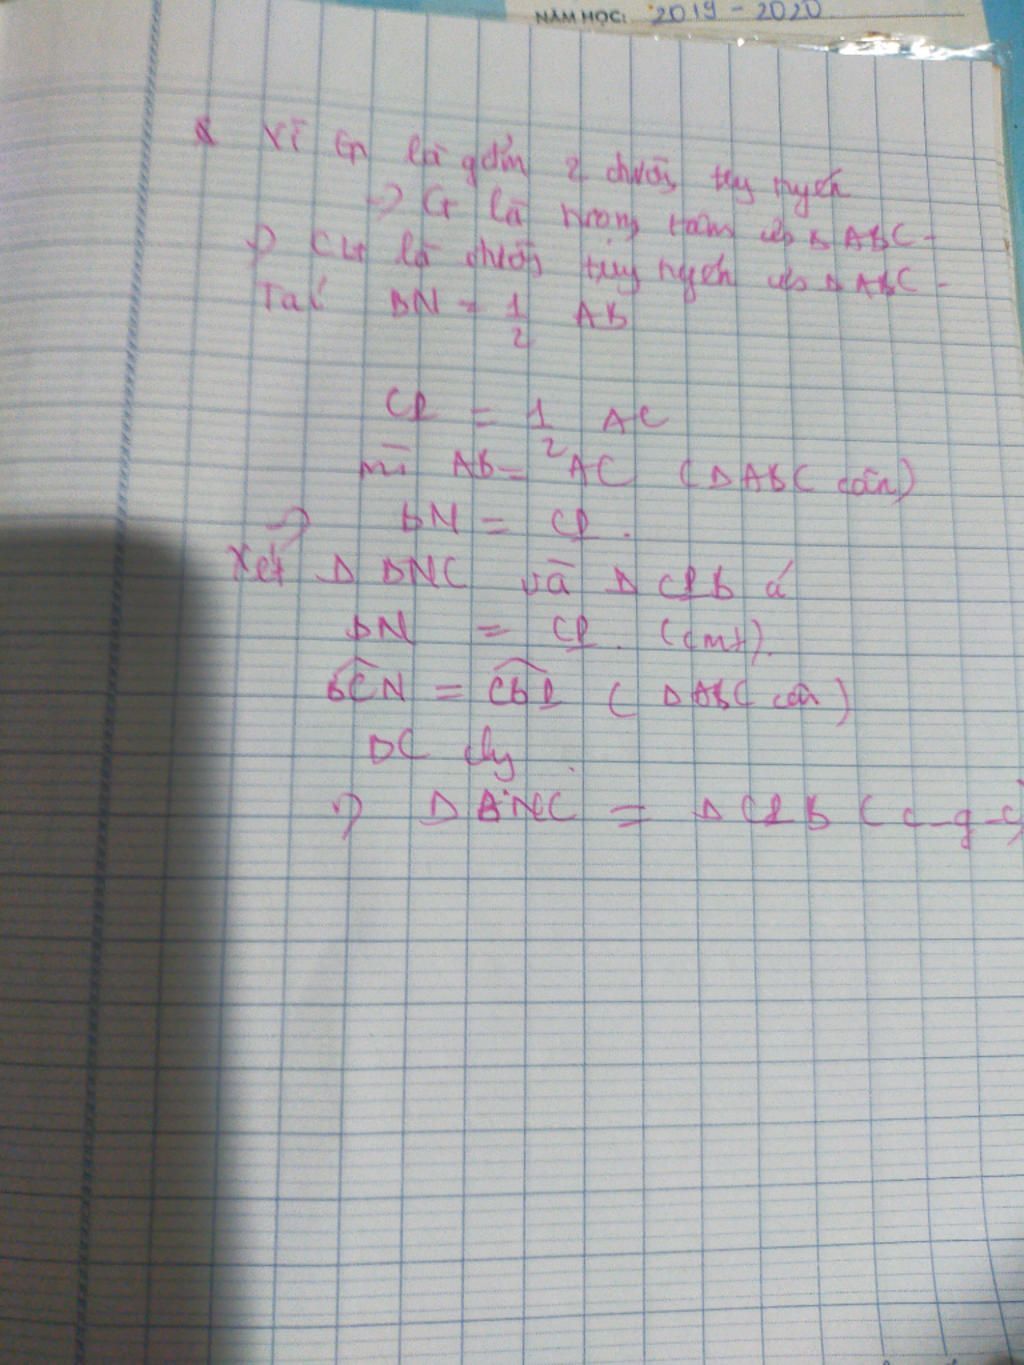 NĂM HỌC: 2019 - 2020
Vì G là gđm 2 đường
=> G là trọng tâm của Δ ABC -
=> là đường của Δ ABC -
Ta có BN = 1/2 AB
CP = 1/2 AC
mà AB = AC (Δ ABC cân)
=> BN = CP .
Xét Δ BNC và Δ CPB có
BN = CP . (cmt).
BCN = CBP ( Δ ABC cân )
BC chung
=> Δ BNC = Δ CPB ( c - g - c)